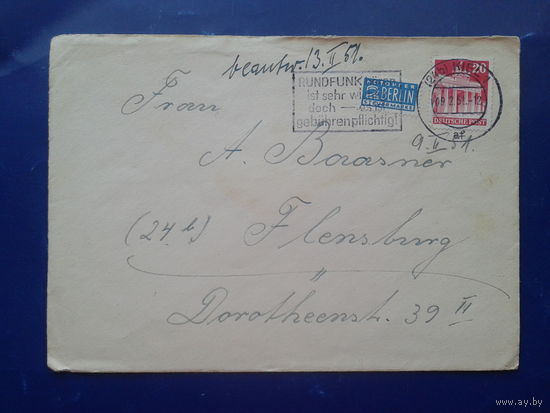 beantw. 13. II 51.
RUNDFUNK
ist sehr
doch —
gebührenpflichtig!
NOTOPFER
2 BERLIN
STEUERMARKE
20
DEUTSCHE POST
9. II 51.
Frau
A. Baasner
(24 b) Flensburg
Dorotheenst. 39 II
www.ay.by